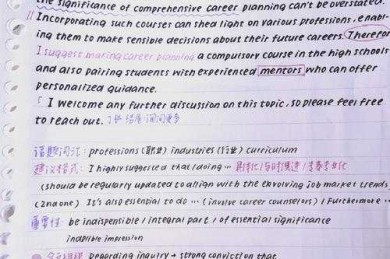 the significance of comprehensive career planning can't be overstated.
Incorporating such courses can shed light on various professions, enabl-
ing them to make sensible decisions about their future careers. Therefor
I suggest making career planning a compulsory course in the high schools
and also pairing students with experienced mentors who can offer
personalized guidance.
I welcome any further discussion on this topic, so please feel free
to reach out.
professions (职业) industries (行业) curriculum
I highly suggested that/doing…
(should be regularly updated to align with the evolving job market trends
(2nd one) It's also essential to do … (involve career counselors) / Furthermore …
重要性: be indispensible / integral part / of essential significance
indelible impression
Regarding inquiry → strong conviction that